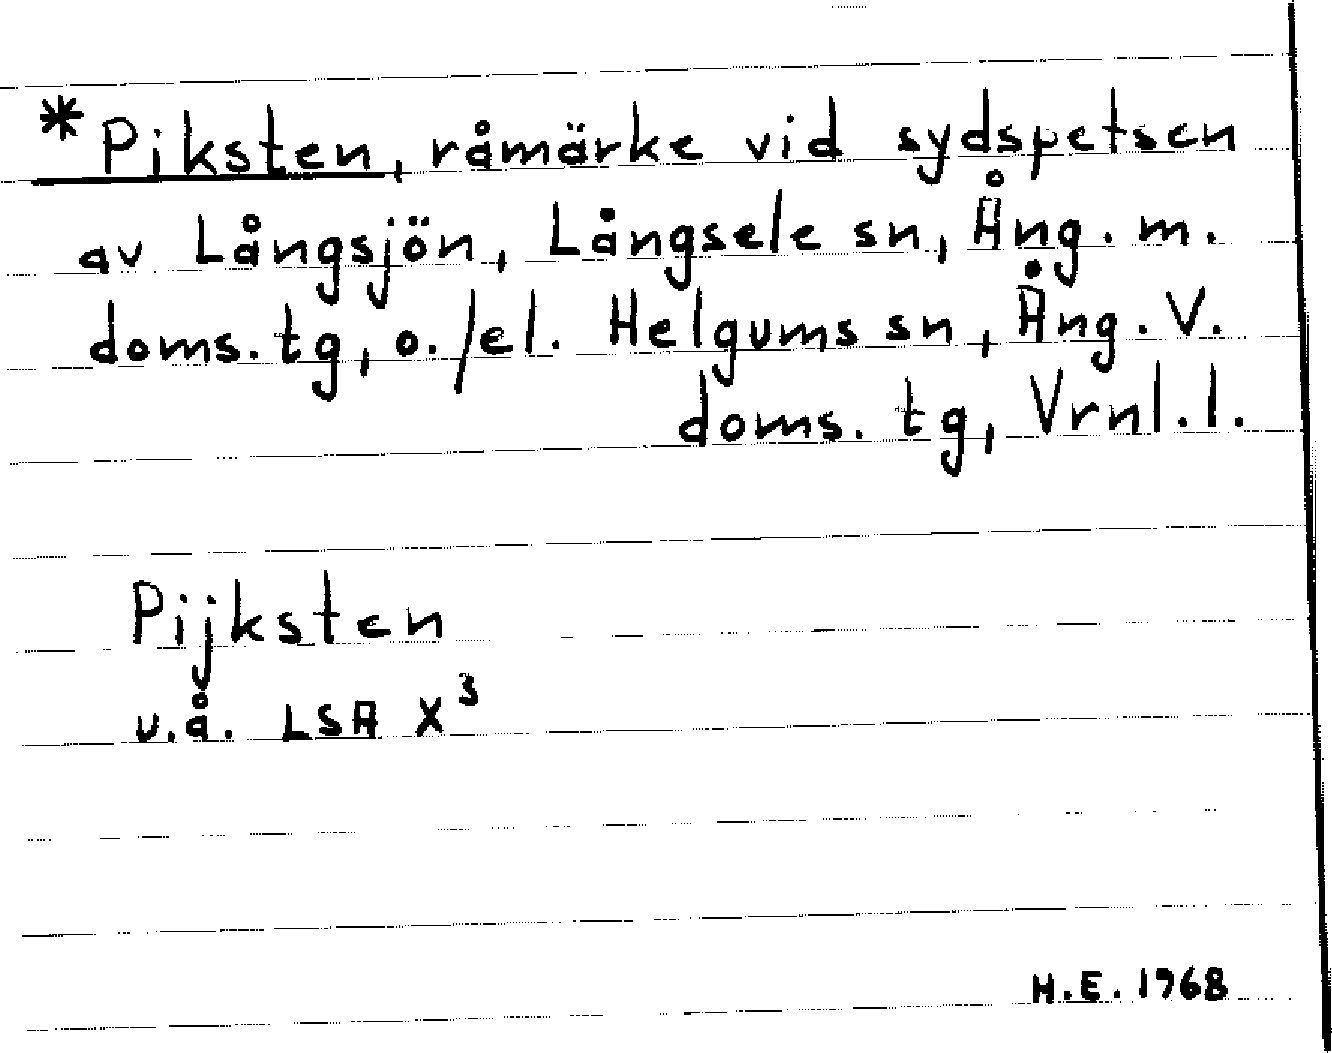 *Piksten, råmärke vid sydspetsen
av Långsjön, Långsele sn, Ång. m.
doms. tg, o./el. Helgums sn, Ång. V.
doms. tg, Vrnl. l.
Pijksten
u.å. LSA X³
H.E. 1968